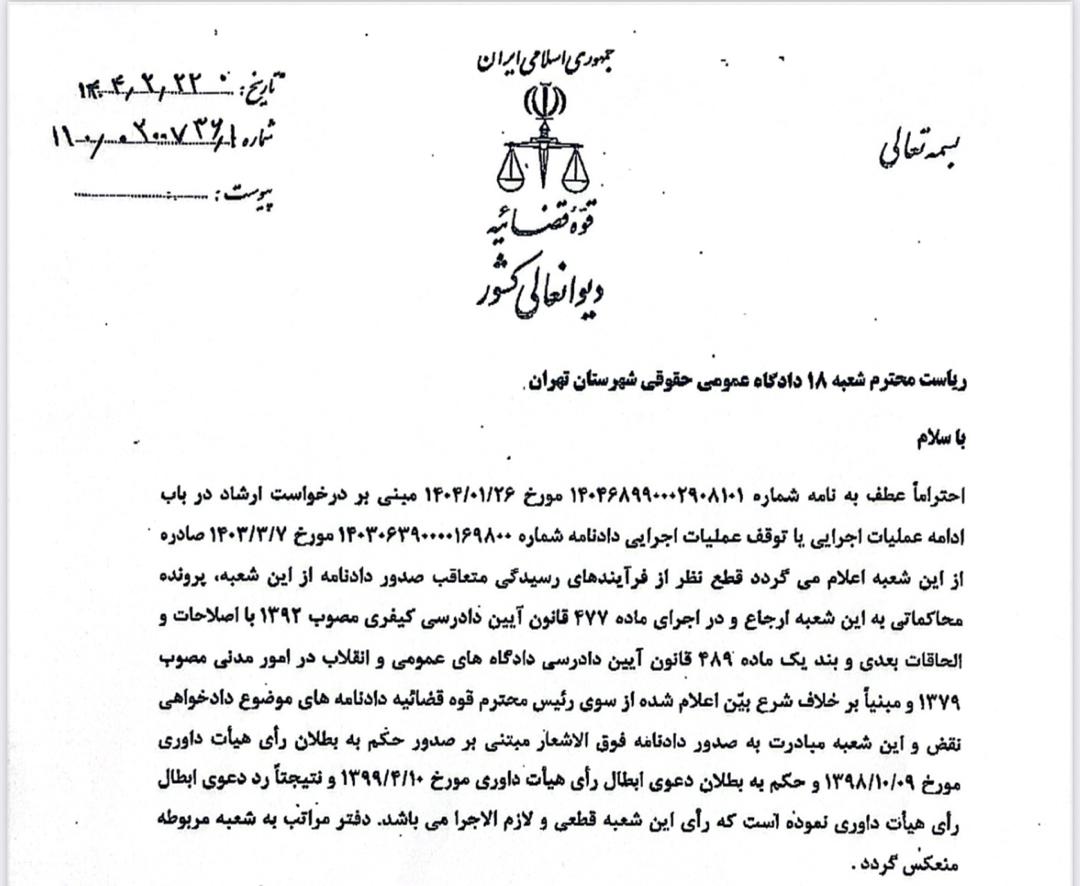 جمهوری اسلامی ایران
بسمه تعالی
تاریخ: ۱۴۰۴٫۲٫۲۲
شماره
پیوست:
قوّهٔ قضائیه
دیوانعالی کشور
ریاست محترم شعبه ۱۸ دادگاه عمومی حقوقی شهرستان تهران.
با سلام
احتراماً عطف به نامه شماره ۱۴۰۴۶۸۹۹۰۰۰۲۹۰۸۱۰۱ مورخ ۱۴۰۴/۰۱/۲۶ مبنی بر درخواست ارشاد در باب
ادامه عملیات اجرایی یا توقف عملیات اجرایی دادنامه شماره ۱۴۰۳۰۶۳۹۰۰۰۰۱۶۹۸۰۰ مورخ ۱۴۰۳/۳/۷ صادره
از این شعبه اعلام می گردد قطع نظر از فرآیندهای رسیدگی متعاقب صدور دادنامه از این شعبه، پرونده
محاکماتی به این شعبه ارجاع و در اجرای ماده ۴۷۷ قانون آیین دادرسی کیفری مصوب ۱۳۹۲ با اصلاحات و
الحاقات بعدی و بند یک ماده ۴۸۹ قانون آیین دادرسی دادگاه های عمومی و انقلاب در امور مدنی مصوب
۱۳۷۹ و مبنیاً بر خلاف شرع بیّن اعلام شده از سوی رئیس محترم قوه قضائیه دادنامه های موضوع دادخواهی
نقض و این شعبه مبادرت به صدور دادنامه فوق الاشعار مبتنی بر صدور حکم به بطلان رأی هیأت داوری
مورخ ۱۳۹۸/۱۰/۰۹ و حکم به بطلان دعوی ابطال رأی هیأت داوری مورخ ۱۳۹۹/۴/۱۰ و نتیجتاً رد دعوی ابطال
رأی هیأت داوری نموده است که رأی این شعبه قطعی و لازم الاجرا می باشد. دفتر مراتب به شعبه مربوطه
منعکس گردد.